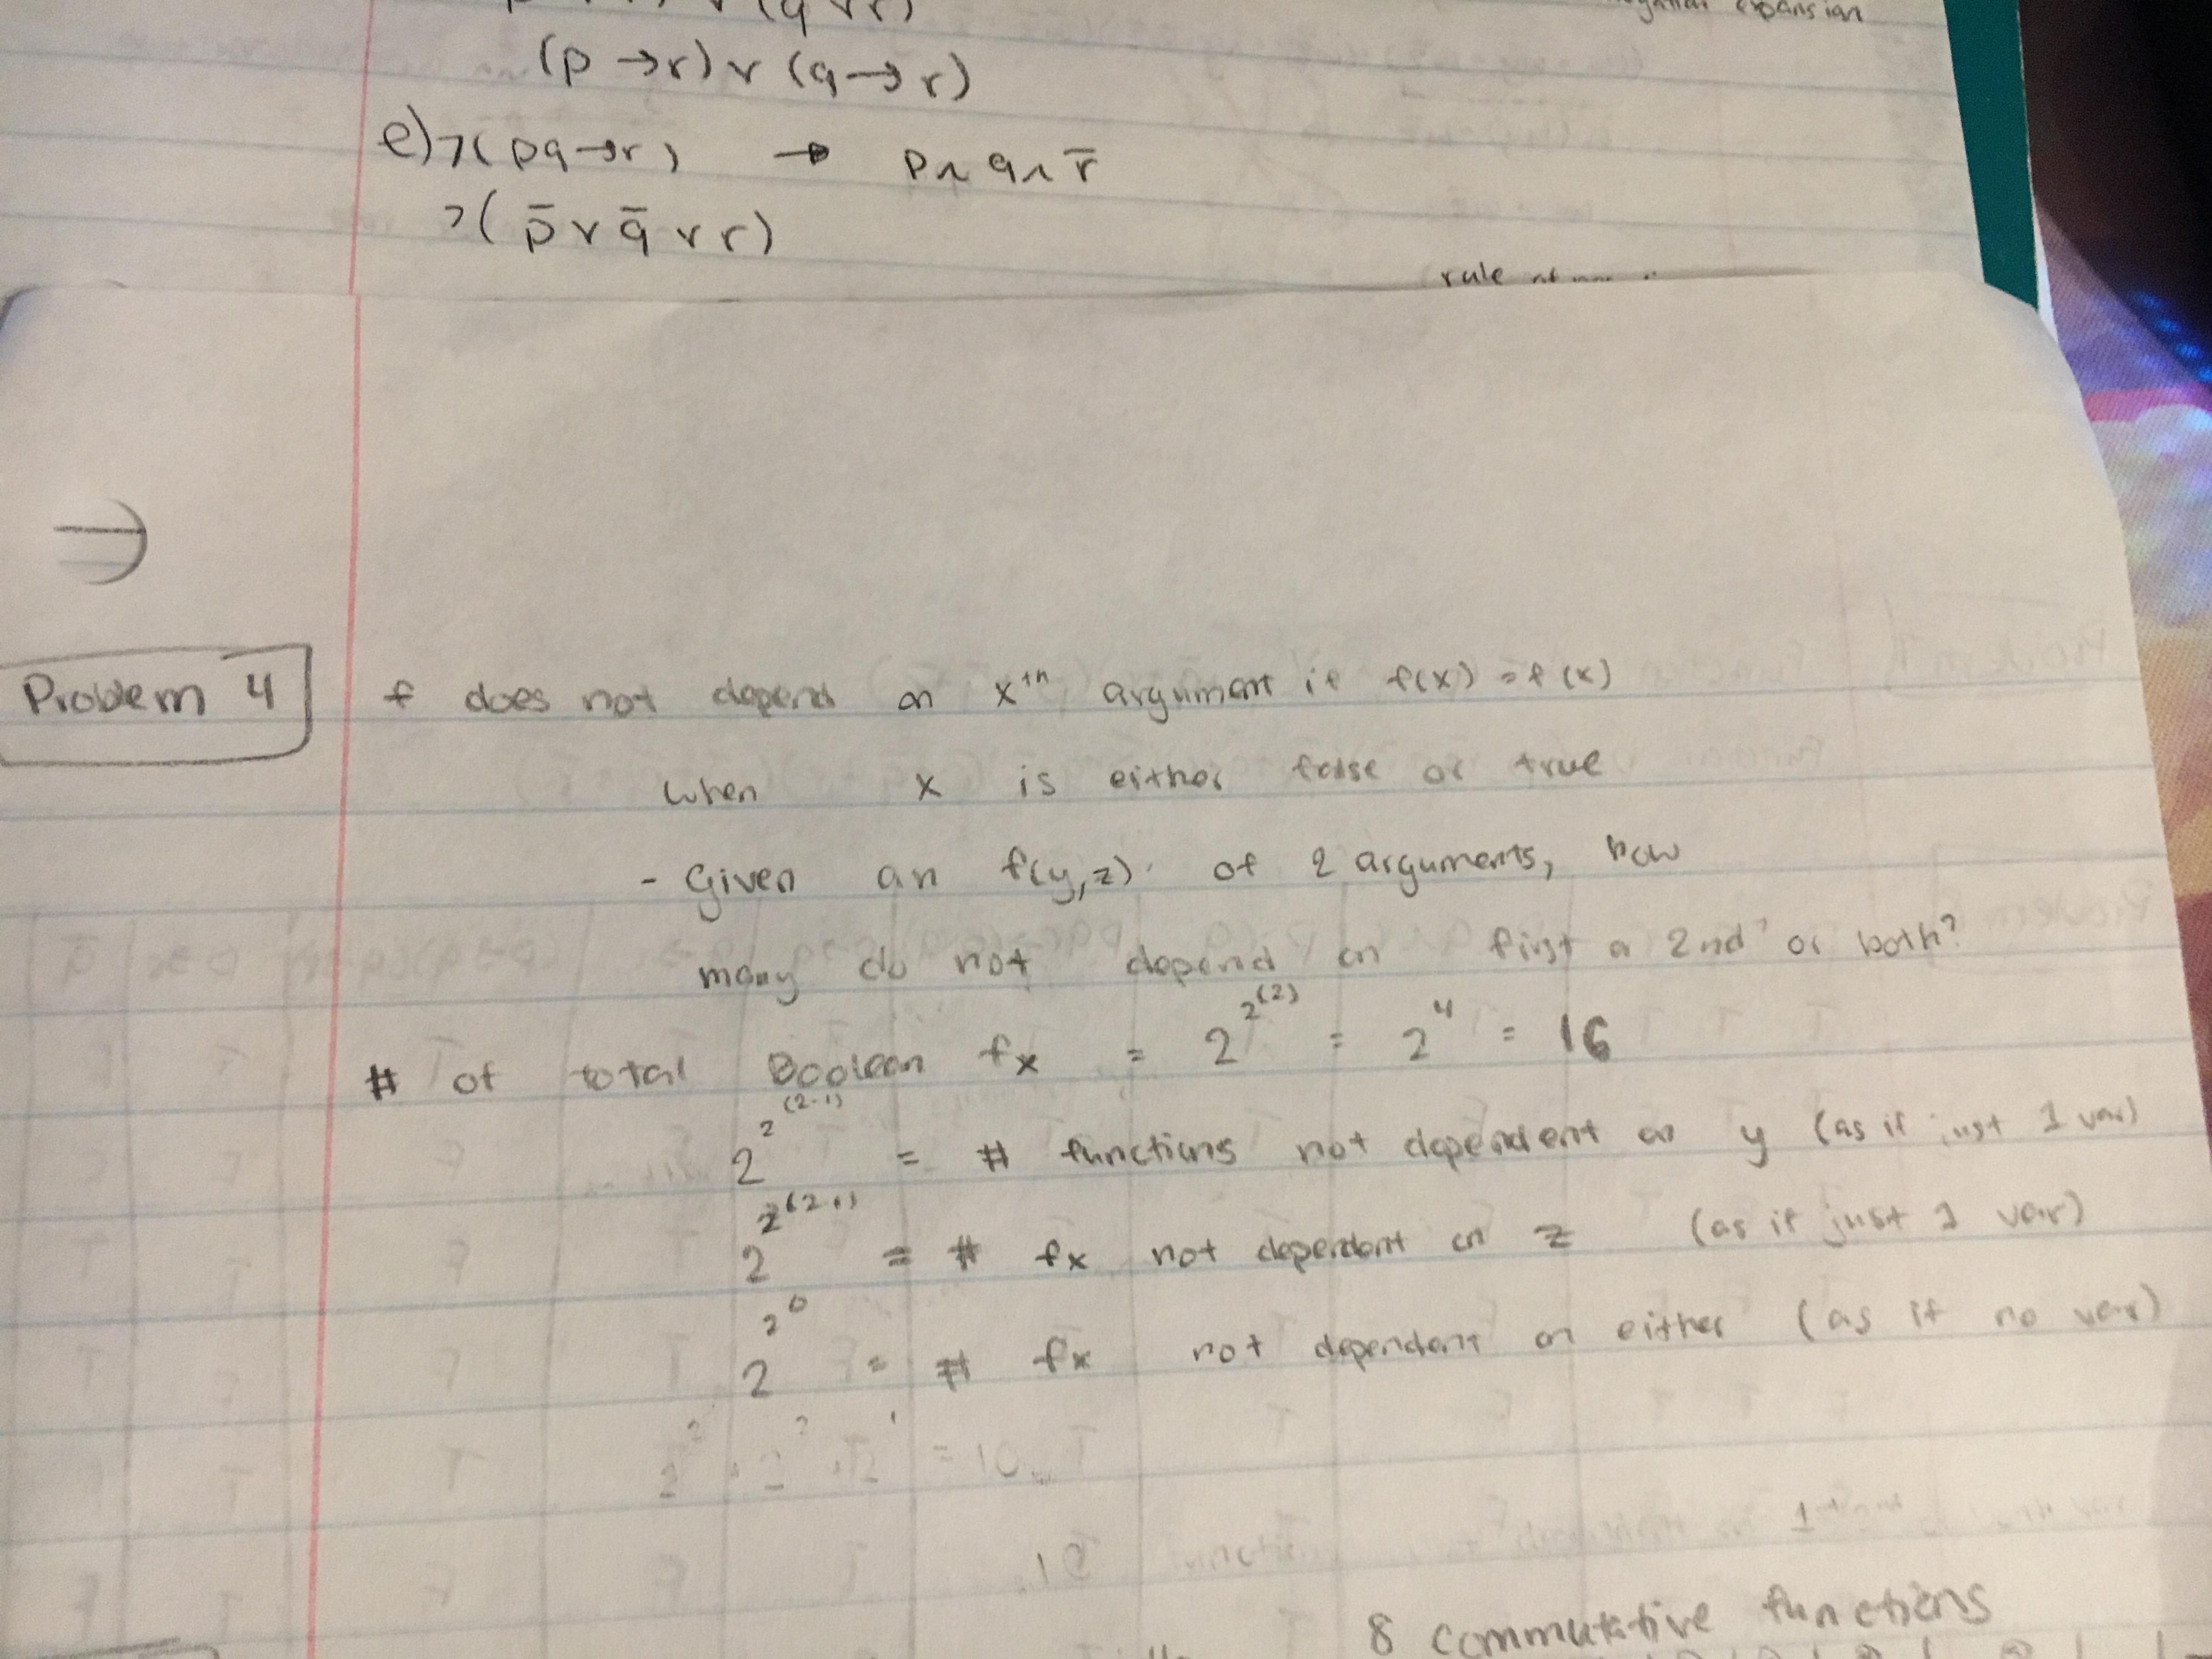 (q ∨ r)
expansion
(p → r) ∨ (q → r)
e) ¬(pq → r) → p ∧ q ∧ r̄
¬(p̄ ∨ q̄ ∨ r)
rule
Problem 4
f does not depend on xth argument if f(x) = f(x)
when x is either false or true
- Given an f(y,z) of 2 arguments, how
many do not depend on first or 2nd or both?
# of total Boolean fx = 2^2^(2) = 2^4 = 16
2^2^(2-1) = # functions not dependent on y (as if just 1 var)
2^2^(2-1) = # fx not dependent on z (as if just 1 var)
2^2^0 = # fx not dependent on either (as if no var)
= 10
8 commutative functions